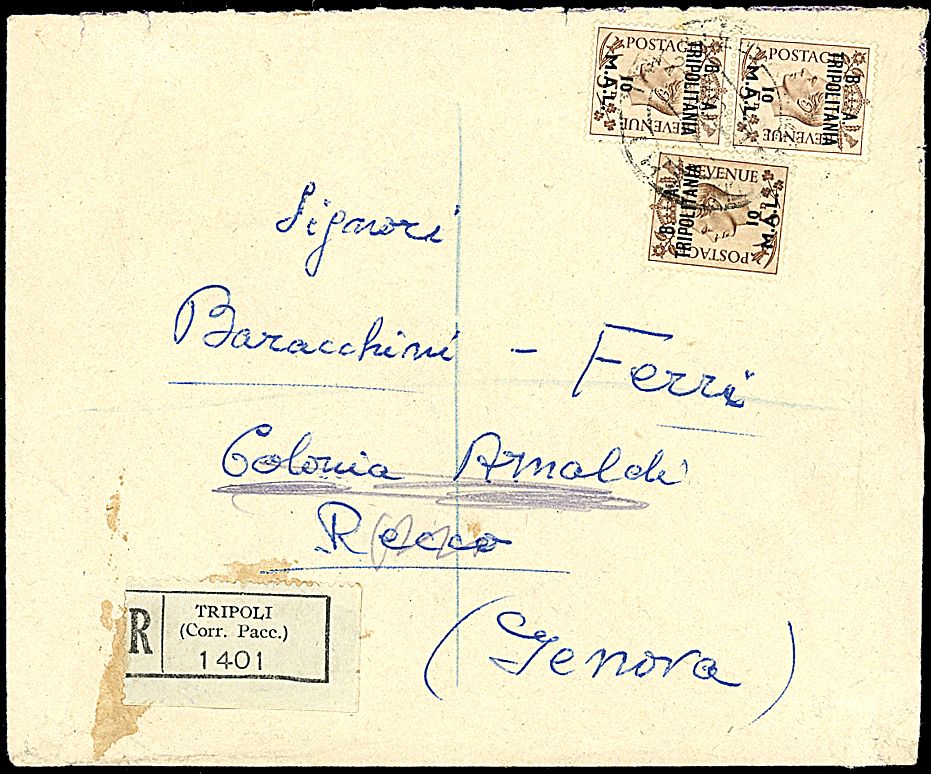 POSTAGE
REVENUE
B. A.
TRIPOLITANIA
10
M.A.L.
POSTAGE
REVENUE
B. A.
TRIPOLITANIA
10
M.A.L.
REVENUE
POSTAGE
B. A.
TRIPOLITANIA
10
M.A.L.
Signori
Baracchini - Ferri
Colonia Arnaldi
Recco
(Genova)
R
TRIPOLI
(Corr. Pacc.)
1401